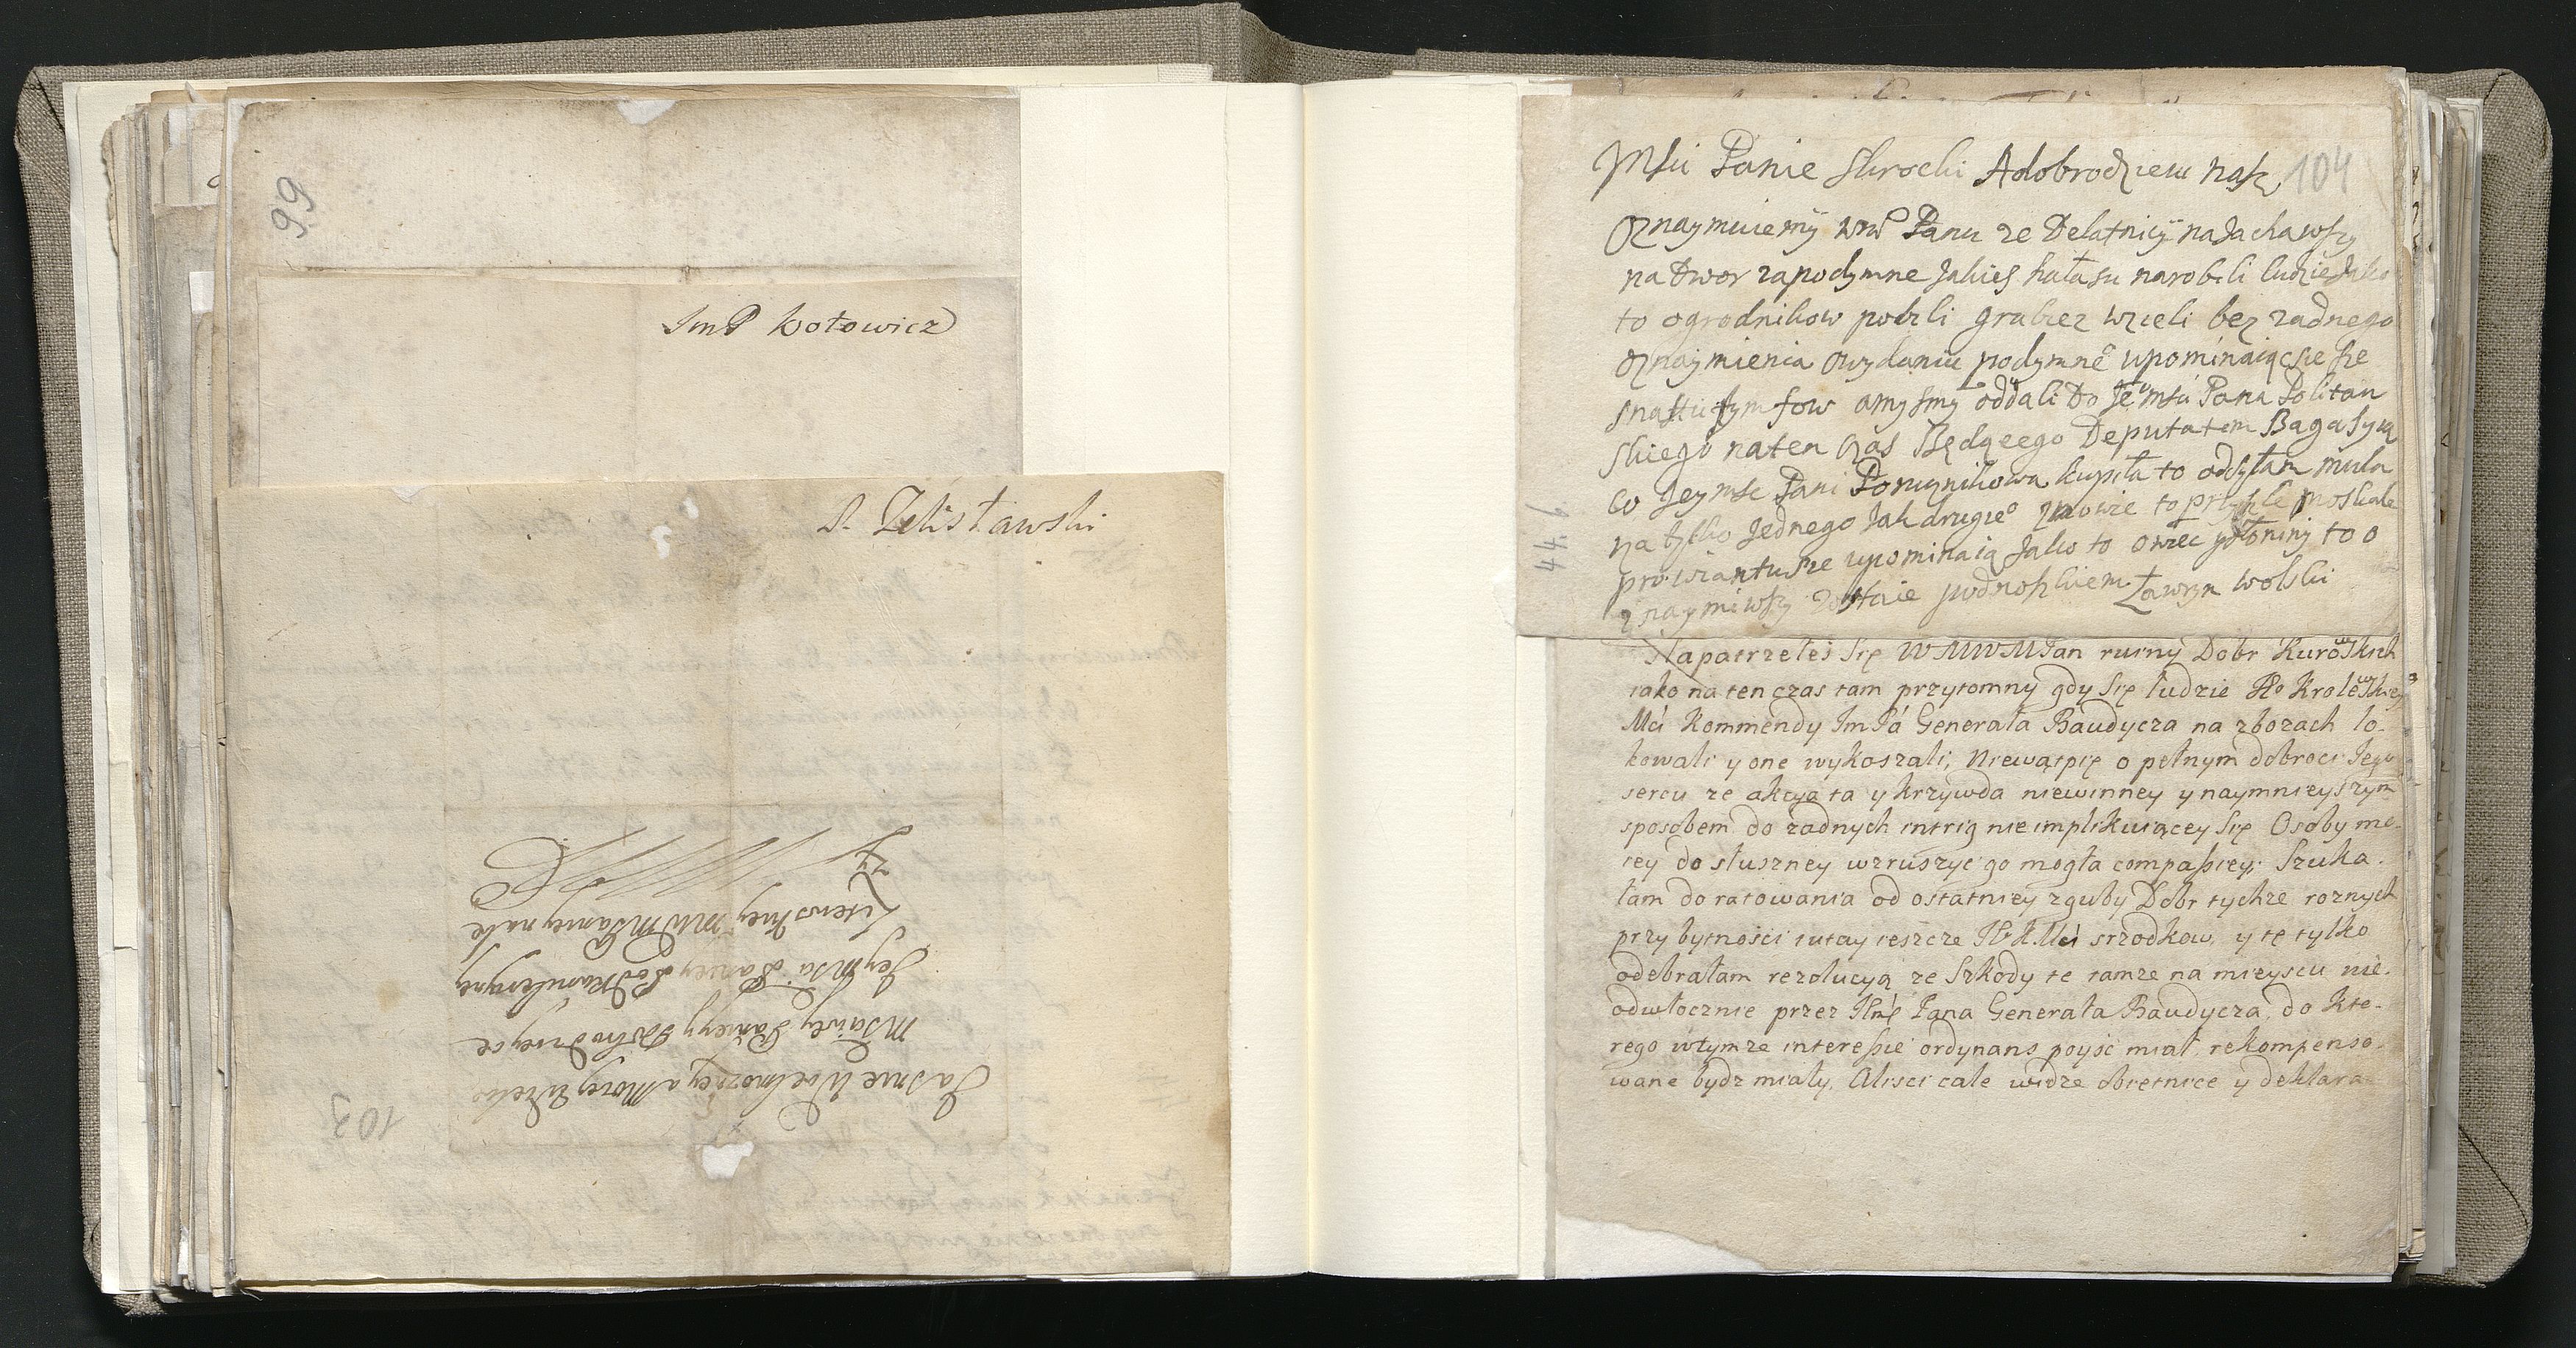 99
ImP Kotowicz
P. Zelisławski
Jasnie Wielmozney a Moiey Wielce
Msciwey Paniey Dobrodzieyce
Jey Msci Paniey Podkanclerzyney
Litewskiey MW MPaniey nale
zy
103
104
Msci Panie Skrocki A dobrodzieiu nasz
Oznaymuiemÿ Panu ze Delatnicÿ najachawszy
na Dwor za podymne Jakies hałasu narobili ludzie Jako
to ogrodnikow pobili grabiez wzieli bez zadnego
Oznaÿmienia o wydaniu podymne° upominaiąc sie ze
amy smÿ oddali Do Je°msci Pana Politan
skiego na ten czas Będącego Deputatem
co Jey msc Pani Porucznikowa kupiła to odsyłam
na tylko Jednego Jak drugie° znowie to przyszle moskale
prowiantu sie upominaią Jako to owiec y słoninÿ to o
znaymiwszy zostaie podnoszkiem Ławryn Wolski
44. 6
Napatrzełeś Się WMWMPan ruiny Dobr Kurowskich
iako na ten czas tam przytomny gdy Się ludzie Krolewskiey
Mci Kommendy ImPa Generała Baudycza na zbozach lo-
kowali y one wykoszali; Niewątpię o pełnym dobroci Jego
sercu ze akcya ta y krzywda niewinney y naymnieyszym
sposobem do zadnych intrig nie implikuiącey Się Osoby mo-
iey do słuszney wzruszyć go mogła compassiey; Szuka-
łam do ratowania od ostatniey zguby Dobr tychze roznych
przy bytności tutay ieszcze Mci srzodkow, y tę tylko
odebrałam rezolucyą ze Szkody te tamze na mieyscu nie-
odwłocznie przez Pana Generała Baudycza, do kto-
rego w tymze interessie ordynans poyść miał, rekompenso-
wane bydz miały. Alisci cale widze obietnice y deklara-